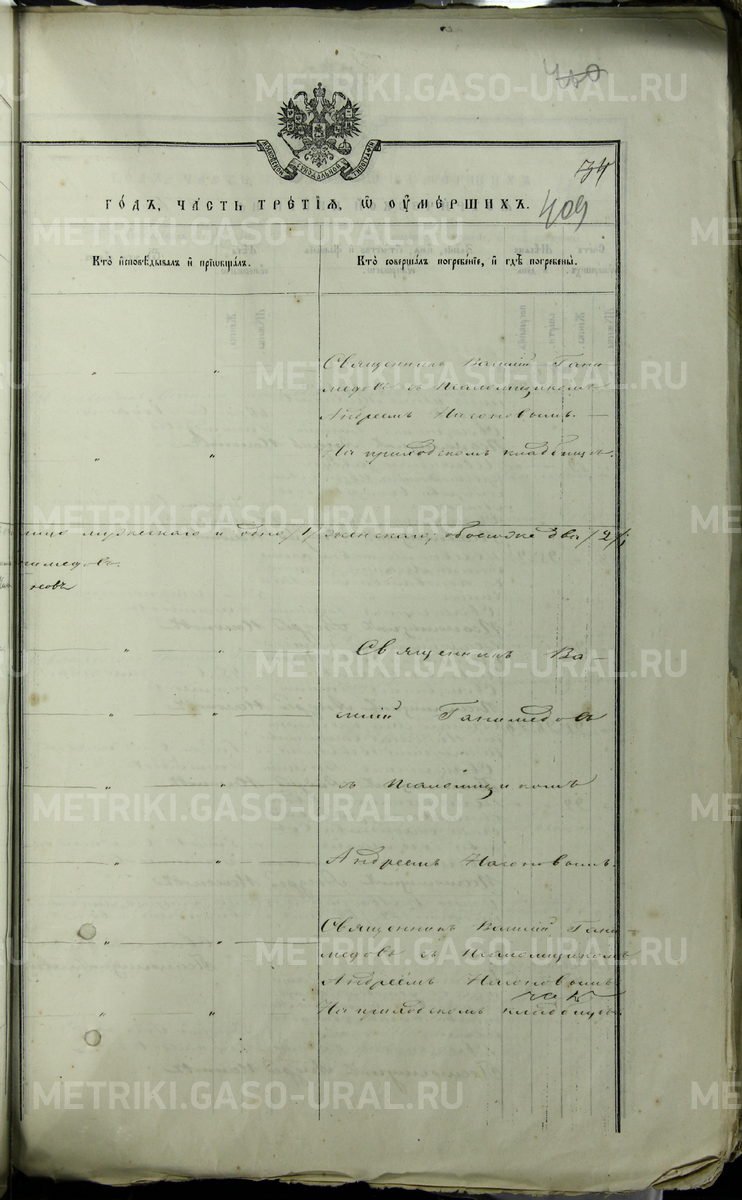 480
METRIKI.GASO-URAL.RU
34
409
го́дъ, ча́сть тре́тїѧ, ѡ҆ ᲂу҆ме́ршихъ.
Кто̀ и҆сповѣ́дывалъ и҆ прїѡбща́лъ.
Кто̀ соверша́лъ погребе́нїе, и҆ гдѣ̀ погребены̀.
Священникъ Василій Гани
медовъ съ псаломщикомъ
Андреемъ Насоновымъ. —
На приходскомъ кладбищѣ.
лицо мужескаго и одно /1/ женскаго, обоего же два /2/;
нимедовъ
новъ
Священникъ Ва-
силій Ганимедовъ
съ псаломщикомъ
Андреемъ Насоновымъ.
Священникъ Василій Гани
медовъ съ Псаломщикомъ
Андреемъ Насоновымъ
На приходскомъ кладбищѣ.